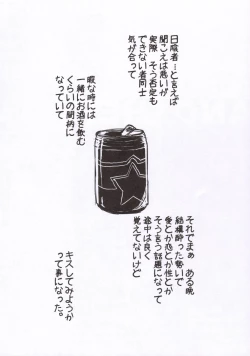 日陰者…と言えば
聞こえは悪いが
実際 そう否定も
できない者同士
気が合って
暇な時には
一緒にお酒を飲む
くらいの間柄に
なっていて
それでまぁ ある晩
結構酔った勢いで
愛とか恋とか性とか
そう言う話題になって
途中は良く
覚えてないけど
キスしてみようか
って事になった。